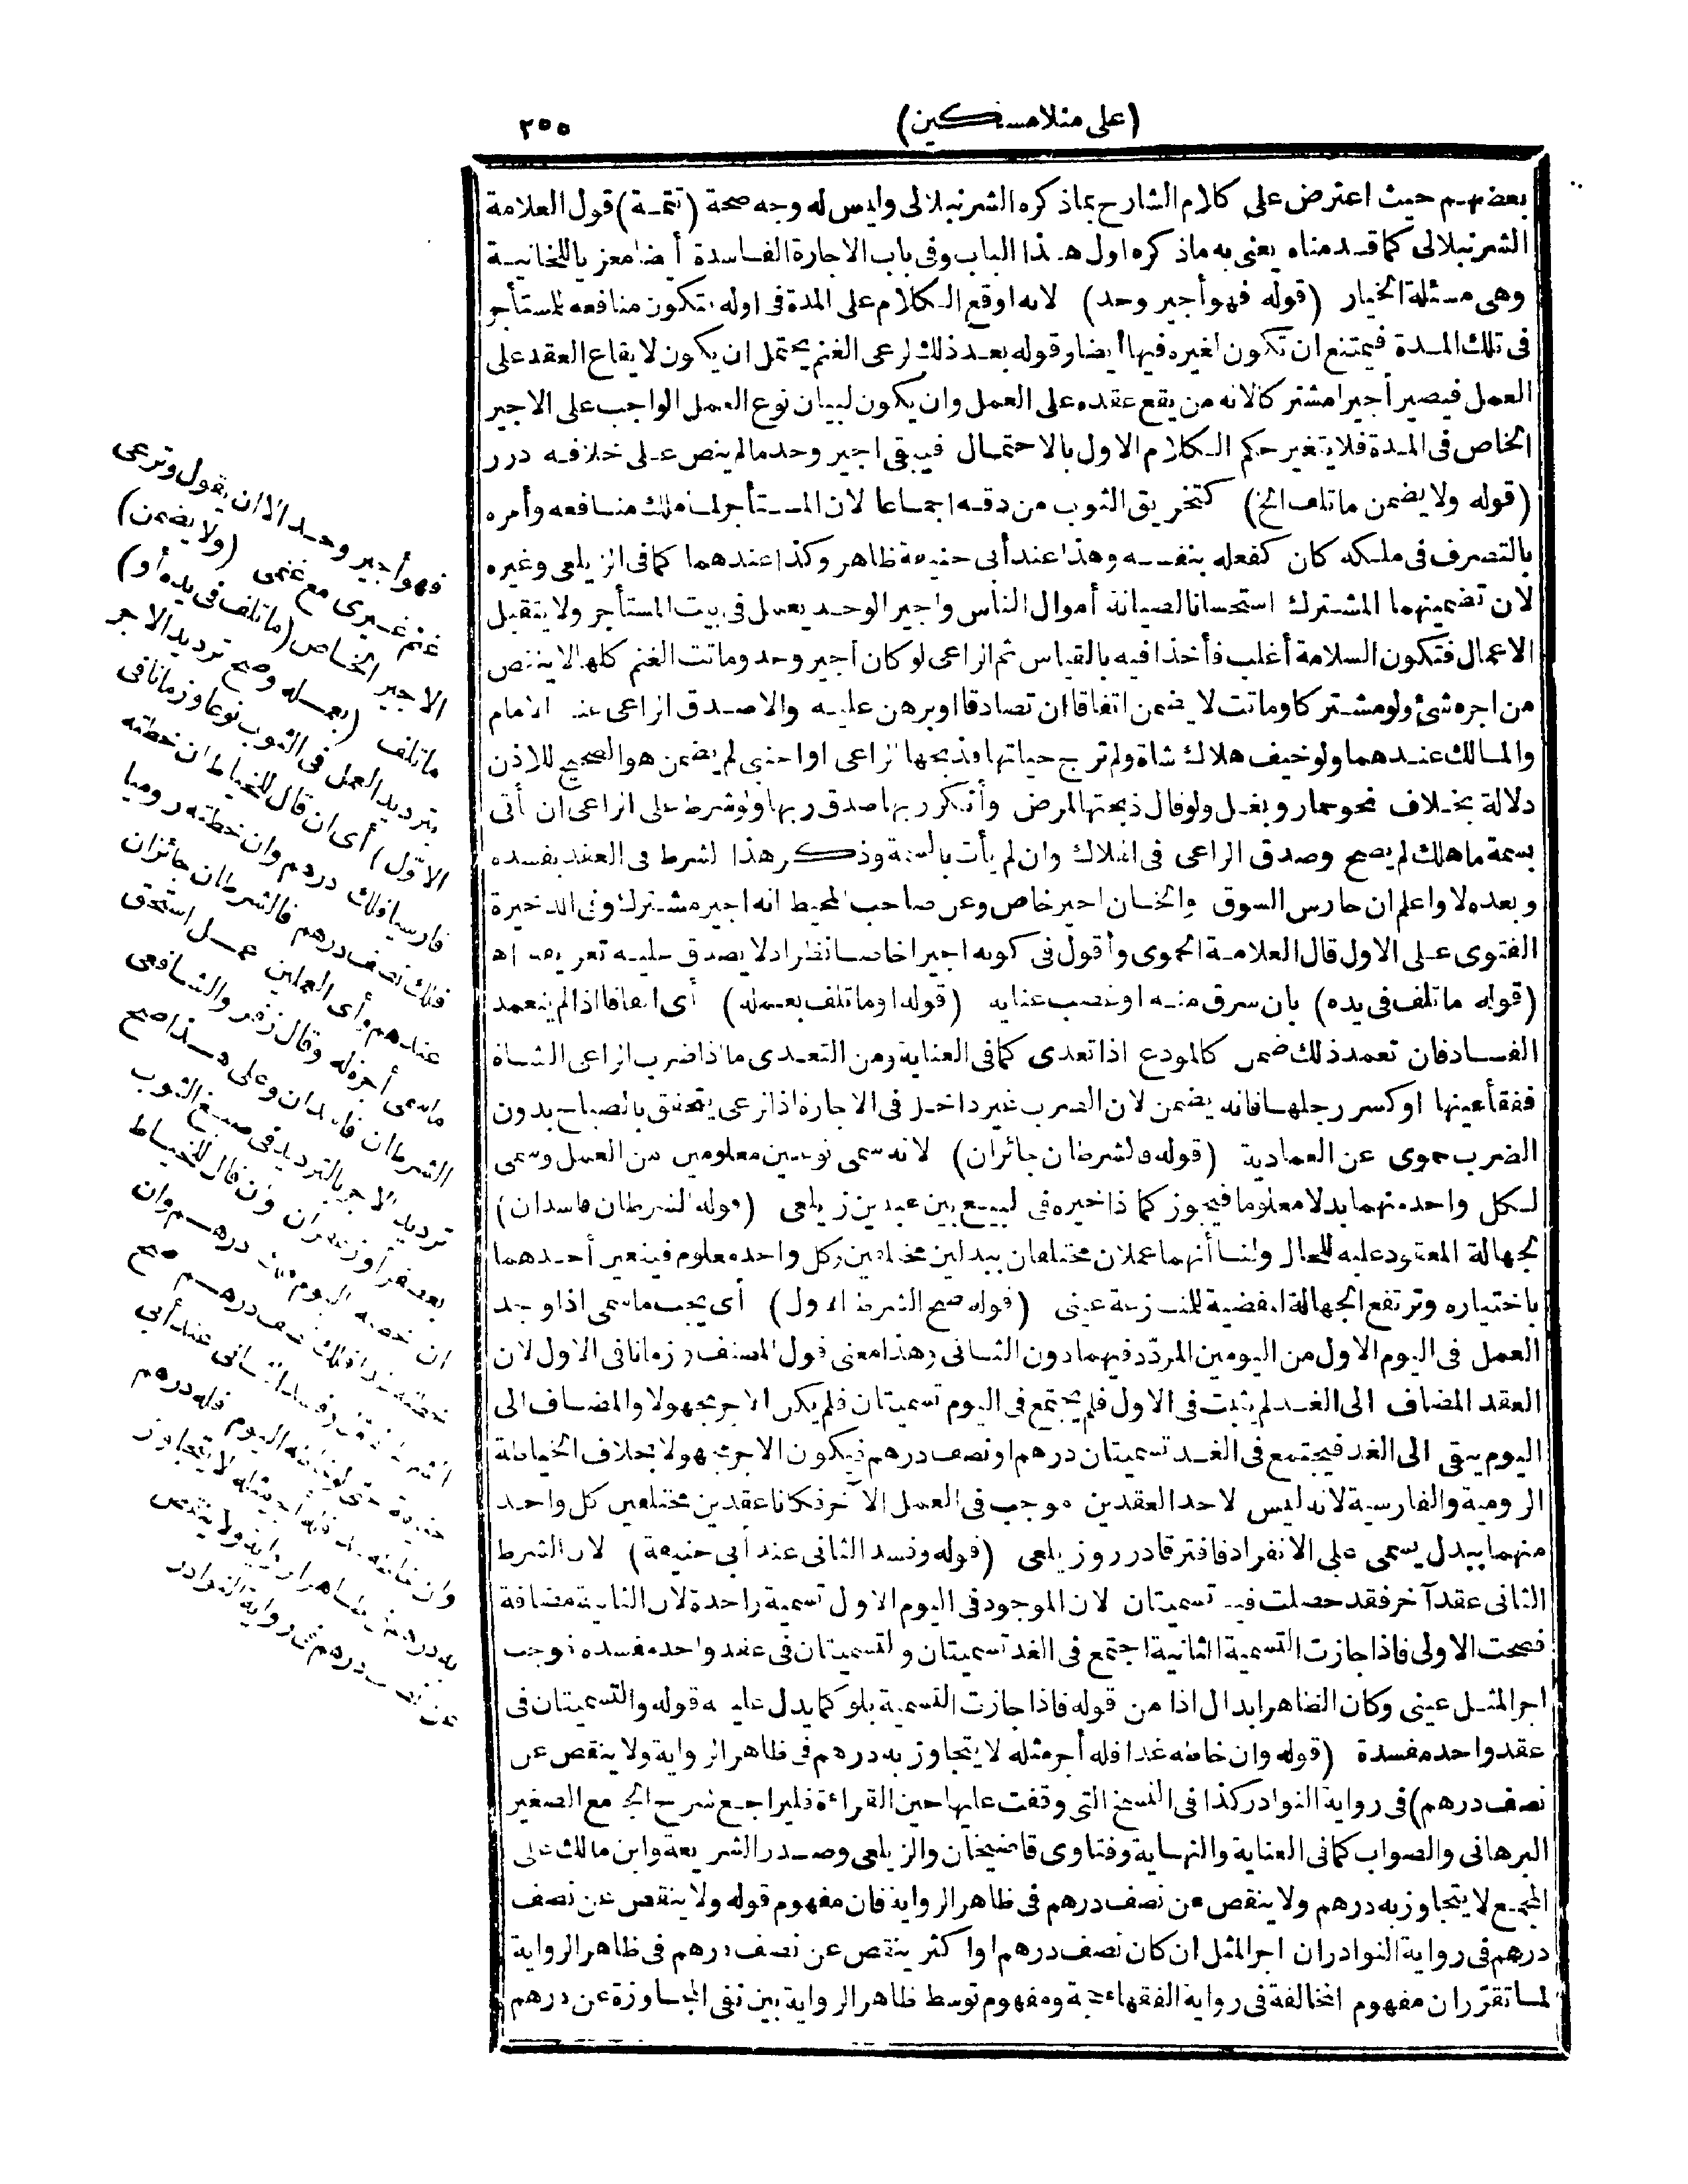 (على منلا مسكين)
٢٥٥
بعضهم حيث اعترض على كلام الشارح بما ذكره الشرنبلالى وليس له وجه صحة (تتمة) قول العلامة
الشرنبلالى كما قدمناه يعنى به ما ذكره اول هذا الباب وفى باب الاجارة الفاسدة أيضا معزيا للخانية
وهى مسئلة الخيار (قوله فهو أجير وحد) لانه اوقع الكلام على المدة فى اوله فتكون منافعه للمستأجر
فى تلك المدة فيمتنع ان تكون لغيره فيها أيضا وقوله بعد ذلك لرعى الغنم يحتمل ان يكون لايقاع العقد على
العمل فيصير أجيرا مشتركا لانه من يقع عقده على العمل وان يكون لبيان نوع العمل الواجب على الاجير
الخاص فى المدة فلا يتغير حكم الكلام الاول بالاحتمال فيبقى اجير وحد مالم ينص على خلافه درر
(قوله ولا يضمن ما تلف الخ) كتخريق الثوب من دقه اجماعا لان المستأجر لما ملك منافعه وأمره
بالتصرف فى ملكه كان كفعله بنفسه وهذا عند أبى حنيفة ظاهر وكذا عندهما كما فى الزيلعى وغيره
لان تضمينهما المشترك استحسانا لصيانة أموال الناس واجير الوحد يعمل فى بيت المستأجر ولا يتقبل
الاعمال فتكون السلامة أغلب فأخذا فيه بالقياس ثم الراعى لو كان اجير وحد وماتت الغنم كلها لا ينقص
من اجره شئ ولو مشتركا وماتت لا يضمن اتفاقا ان تصادقا او برهن عليه والا صدق الراعى عند الامام
والمالك عندهما ولو خيف هلاك شاة ولم ترج حياتها فذبحها الراعى او اجنبى لم يضمن هو الصحيح للاذن
دلالة بخلاف نحو حمار وبغل ولو قال ذبحتها لمرض وأنكر ربها صدق ربها ولو شرط على الراعى ان أتى
بسمة ما هلك لم يصح وصدق الراعى فى الهلاك وان لم يأت بالسمة وذكر هذا الشرط فى العقد يفسده
وبعده لا واعلم ان حارس السوق والخان اجير خاص وعن صاحب المحيط انه اجير مشترك وفى الذخيرة
الفتوى على الاول قال العلامة الحموى وأقول فى كونه اجيرا خاصا نظر اذ لا يصدق عليه تعريفه اه
(قوله ما تلف فى يده) بان سرق منه او غصب عنايه (قوله او ما تلف بعمله) أى اتفاقا اذا لم يتعمد
الفساد فان تعمد ذلك ضمن كالمودع اذا تعدى كما فى العناية ومن التعدى ما اذا ضرب الراعى الشاة
ففقأ عينها او كسر رجلها فانه يضمن لان الضرب غير داخل فى الاجارة اذ الرعى يتحقق بالصياح بدون
الضرب حموى عن العمادية (قوله والشرطان جائزان) لانه سمى نوعين معلومين من العمل وسمى
لكل واحد منهما بدلا معلوما فيجوز كما اذا خيره فى البيع بين عبدين زيلعى (قوله الشرطان فاسدان)
لجهالة المعقود عليه للحال ولنا أنهما عملان مختلفان ببدلين مختلفين وكل واحد معلوم فيتعين أحدهما
باختياره وترتفع الجهالة المفضية للمنازعة عينى (قوله صح الشرط الاول) أى يجب ما سمى اذا وجد
العمل فى اليوم الاول من اليومين المردّد فيهما دون الثانى وهذا معنى قول المصنف وزمانا فى الاول لان
العقد المضاف الى الغد لم يثبت فى الاول فلم يجتمع فى اليوم تسميتان فلم يكن الاجر مجهولا والمضاف الى
اليوم يبقى الى الغد فيجتمع فى الغد تسميتان درهم او نصف درهم فيكون الاجر مجهولا بخلاف الخياطة
الرومية والفارسية لانه ليس لاحد العقدين موجب فى العمل الآخر فكانا عقدين مختلفين كل واحد
منهما ببدل يسمى على الانفراد فافترقا درر وزيلعى (قوله وفسد الثانى عند أبى حنيفة) لان الشرط
الثانى عقد آخر فقد حصلت فيه تسميتان لان الموجود فى اليوم الاول تسمية واحدة لان الثانية مضافة
فصحت الاولى فاذا جازت التسمية الثانية اجتمع فى الغد تسميتان والتسميتان فى عقد واحد مفسدة فوجب
اجر المثل عينى وكان الظاهر ابدال اذا من قوله فاذا جازت التسمية بلو كما يدل عليه قوله والتسميتان فى
عقد واحد مفسدة (قوله وان خاطه غدا فله أجر مثله لا يتجاوز به درهم فى ظاهر الرواية ولا ينقص عن
نصف درهم) فى رواية النوادر كذا فى النسخ التى وقفت عليها حين القراءة فليراجع شرح الجامع الصغير
البرهانى والصواب كما فى العناية والنهاية وفتاوى قاضيخان والزيلعى وصدر الشريعة وابن مالك على
المجمع لا يتجاوز به درهم ولا ينقص عن نصف درهم فى ظاهر الرواية فان مفهوم قوله ولا ينقص عن نصف
درهم فى رواية النوادر ان اجر المثل ان كان نصف درهم او اكثر ينقص عن نصف درهم فى ظاهر الرواية
لما تقرّر ان مفهوم المخالفة فى رواية الفقهاء حجة ومفهوم توسط ظاهر الرواية بين نفى المجاوزة عن درهم
فهو أجير وحد الا ان يقول وترعى
غنم غيرى مع غنمى (ولا يضمن)
الاجير الخاص (ما تلف فى يده أو)
ما تلف (بعمله وصح ترديد الاجر
بترديد العمل فى الثوب نوعا وزمانا فى
الاوّل) أى ان قال للخياط ان خطته
فارسيا فلك درهم وان خطته روميا
فلك نصف درهم فالشرطان جائزان
عندهم وأى العملين عمل استحق
ما سمى أجرة له وقال زفر والشافعى
الشرطان فاسدان وعلى هذا صح
ترديد الاجر بالترديد فى صبغ الثوب
بعصفر أو زعفران وان قال للخياط
ان خطته اليوم فلك درهم وان
خطته غدا فلك نصف درهم صح
الشرط الاول وفسد الثانى عند أبى
حنيفة حتى لو خاطه اليوم فله درهم
وان خاطه غدا فله أجر مثله لا يتجاوز
به درهم فى ظاهر الرواية ولا ينقص
عن نصف درهم فى رواية النوادر